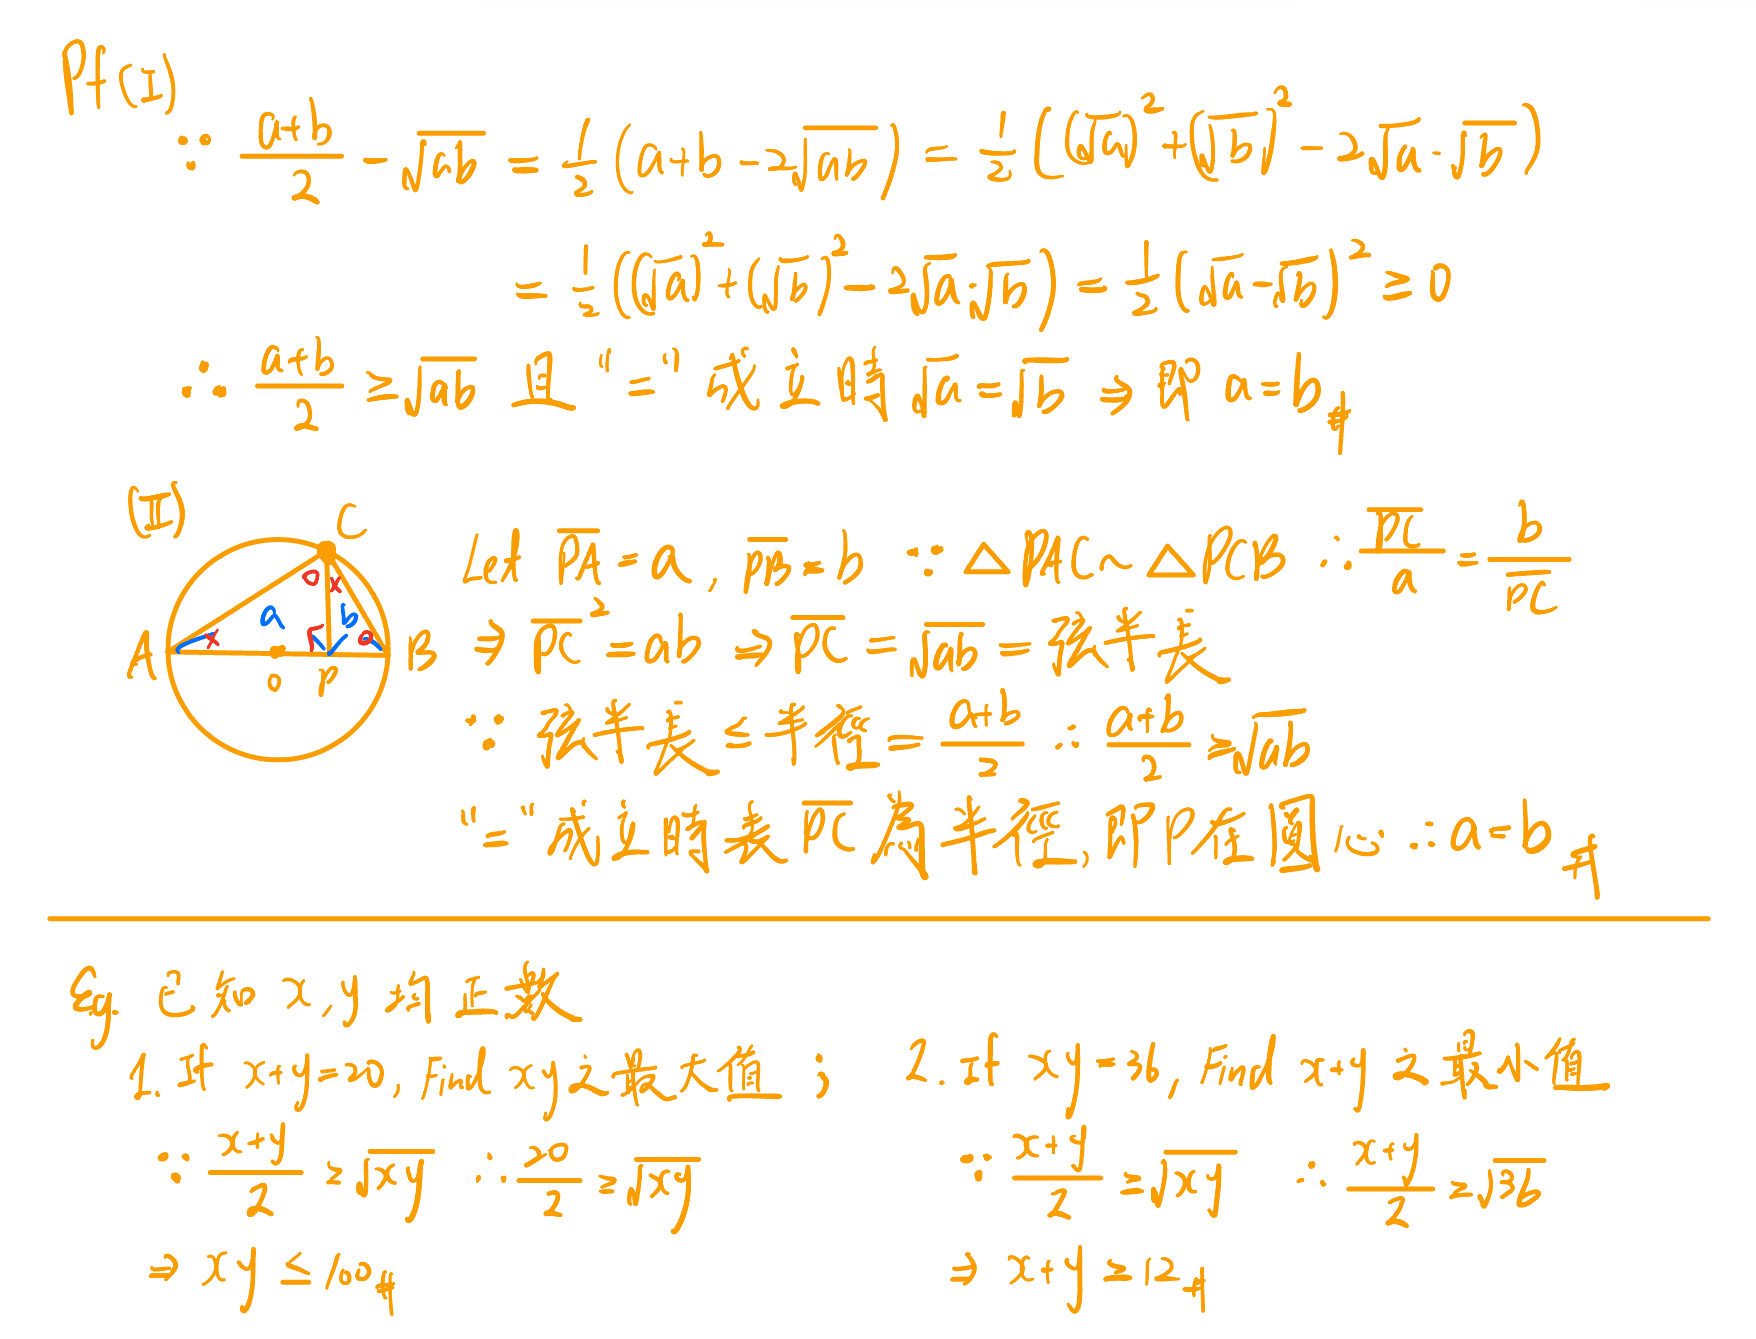 Pf (I)
∵ (a+b)/2 - √ab = 1/2 (a+b-2√ab) = 1/2 ((√a)² + (√b)² - 2√a·√b)
= 1/2 ((√a)² + (√b)² - 2√a·√b) = 1/2 (√a-√b)² ≥ 0
∴ (a+b)/2 ≥ √ab 且 "=" 成立時 √a = √b ⇒ 即 a=b #
(II)
C
O x
a b
A x O B
O P
Let P̅A̅ = a, P̅B̅ = b ∵ △PAC ~ △PCB ∴ P̅C̅/a = b/P̅C̅
⇒ P̅C̅² = ab ⇒ P̅C̅ = √ab = 弦半長
∵ 弦半長 ≤ 半徑 = (a+b)/2 ∴ (a+b)/2 ≥ √ab
"=" 成立時表 P̅C̅ 為半徑, 即P在圓心 ∴ a=b #
Eg. 已知 x, y 均正數
1. If x+y=20, Find xy 之最大值 ;
∵ (x+y)/2 ≥ √xy ∴ 20/2 ≥ √xy
⇒ xy ≤ 100 #
2. If xy=36, Find x+y 之最小值
∵ (x+y)/2 ≥ √xy ∴ (x+y)/2 ≥ √36
⇒ x+y ≥ 12 #